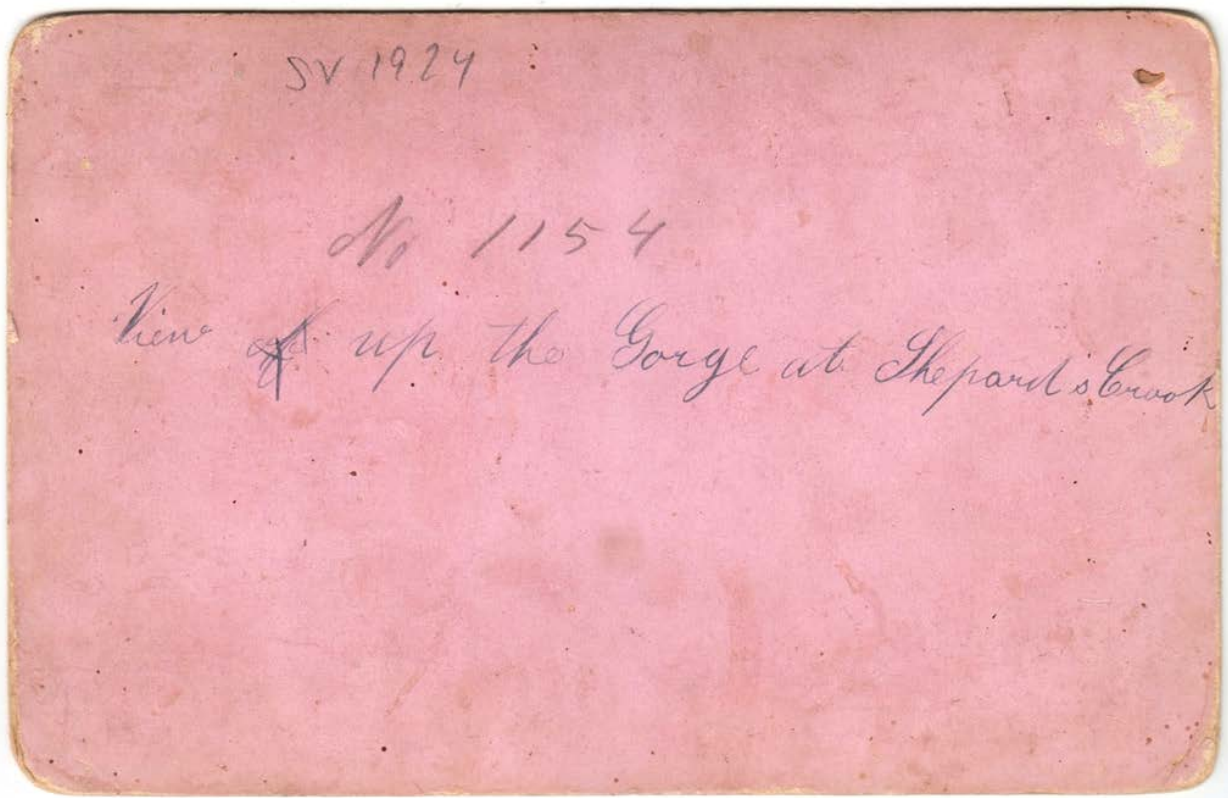 SV 1924
No 1154
View up the Gorge at Shepard's Crook